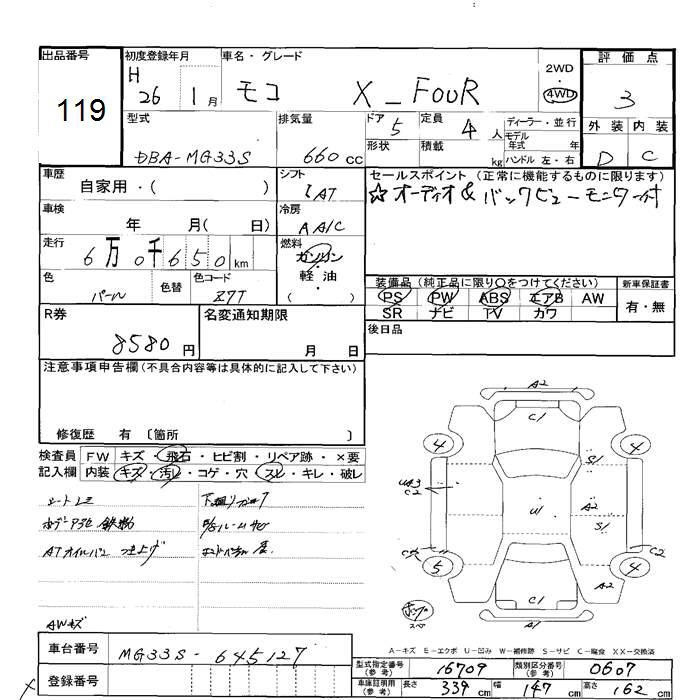 出品番号
119
初度登録年月
H 26 1月
車名・グレード
モコ X_FOUR
2WD
・
4WD
評価点
3
外装 内装
D C
型式
DBA-MG33S
排気量
660cc
ドア
5
形状
定員
4人
積載
kg
ディーラー・並行
モデル年式 年
ハンドル 左・右
車歴
自家用・( )
シフト
IAT
セールスポイント (正常に機能するものに限ります)
☆オーディオ& バックビューモニター付
車検
年 月( 日)
冷房
AAC
走行
6万0千650km
燃料
ガソリン
・
軽油
( )
色
パール
色替
色コード
Z7T
装備品(純正品に限り○をつけてください)
PS PW ABS エアB AW
SR ナビ TV カワ
新車保証書
有・無
R券
8580円
名変通知期限
月 日
後日品
注意事項申告欄(不具合内容等は具体的に記入して下さい)
修復歴 有 〔箇所 〕
検査員記入欄
FW キズ・飛石・ヒビ割・リペア跡・×要
内装 キズ・汚れ・コゲ・穴・スレ・キレ・破レ
ATオイルパン
AWキズ
A2
C1
4
4
S1
C2
U1
A2
S1
C2
5
4
A2
C1
A1
A-キズ E-エクボ U-凹み W-補修跡 S-サビ C-腐食 XX-交換済
車台番号
MG33S-645127
登録番号
型式指定番号(参考)
16709
類別区分番号(参考)
0607
車庫証明用(参考)
長さ 339cm
幅 147cm
高さ 162cm